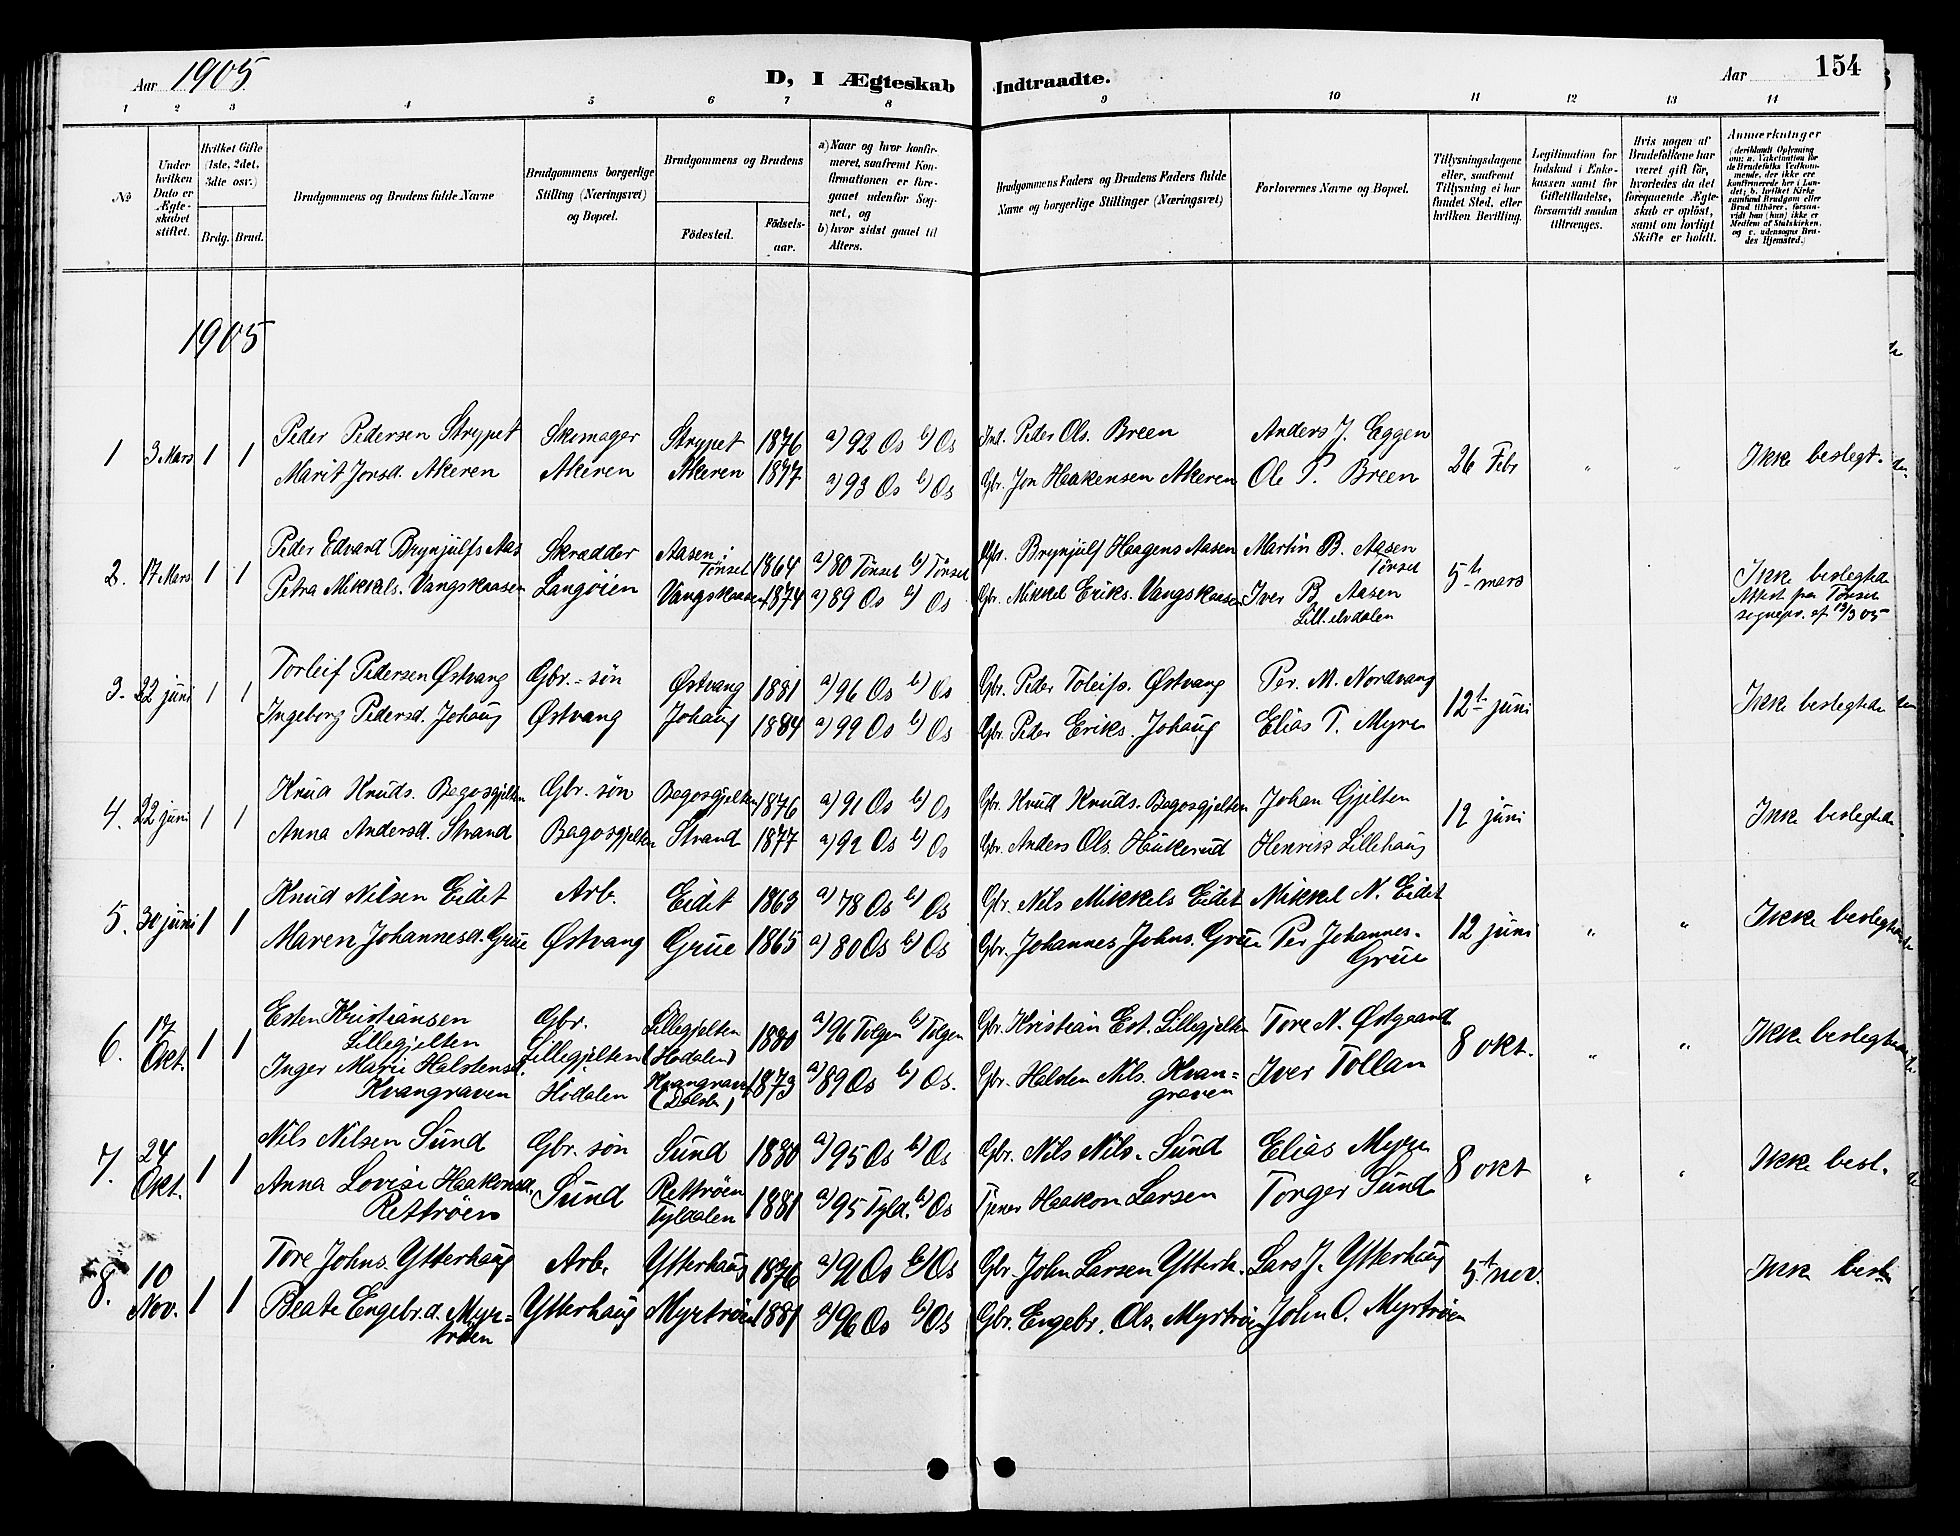 Aar 1905.
D, I Ægteskab Indtraadte.
Aar 154
1 2 3 4 5 6 7 8 9 10 11 12 13 14
No
Under hvilken Dato er Ægteskabet stiftet.
Hvilket Gifte (1ste, 2det, 3die osv.)
Brdg. Brud.
Brudgommens og Brudens fulde Navne
Brudgommens borgerlige Stilling (Næringsvei) og Bopæl.
Brudgommens og Brudens
Fødested.
Fødselsaar.
a) Naar og hvor konfirmeret, saafremt Konfirmationen er foregaaet udenfor Sognet, og
b) hvor sidst gaaet til Alters.
Brudgommens Faders og Brudens Faders fulde Navne og borgerlige Stillinger (Næringsvei)
Forlovernes Navne og Bopæl.
Tillysningsdagene eller, saafremt Tillysning ei har fundet Sted, efter hvilken Bevilling.
Legitimation for Indskud i Enkekassen samt for Giftetilladelse, forsaavidt saadan tiltrænges.
Hvis nogen af Brudefolkene har været gift før, hvorledes da det foregaaende Ægteskab er opløst, samt om lovligt Skifte er holdt.
Anmærkninger (deriblandt Oplysning om: a. Vakcination for de Brudefolks Vedkommende, der ikke ere konfirmerede her i Landet; b. hvilket Kirkesamfund Brudgom eller Brud tilhører, forsaavidt han (hun) ikke er Medlem af Statskirken, og c. udensogns Brudes Hjemsted.)
1905
1 3 Mars 1 1 Peder Pedersen Strypet Skomager Strypet 1876 a) 92 Os b) Os Ind. Peder Ols. Breen Anders J. Eggen 26 Febr " " Ikke beslegt.
Marit Jonsd. Akeren Akeren Akeren 1877 a) 93 Os b) Os Gbr. Jon Haakensen Akeren Ole P. Breen
2. 17 Mars 1 1 Peder Edvard Brynjulfs Aas Skrædder Aasen i Tønset 1864 a) 80 Tønset b) Tønset Gbr. Brynjulf Haagens Aasen Martin B. Aasen Tønset 5te mars Ikke beslegtede
Petra Mikkels. Vangskaasen Langøien Vangskaasen 1874 a) 89 Os b) Os Gbr. Mikkel Eriks. Vangskaasen Iver B Aasen Lill.elvdalen Attest fra Tønset sognepr. af 13/3 05
3. 22 juni 1 1 Torleif Pedersen Østvang Gbr.-søn Østvang 1881 a) 96 Os b) Os Gbr. Peder Toleifs. Østvang Per. M. Nordvang 12te juni Ikke beslegtede
Ingeborg Pedersd. Johaug Østvang Johaug 1884 a) 99 Os b) Os Gbr. Peder Eriks. Johaug Elias T. Myre
4. 22 juni 1 1 Knud Knuds. Bagosgjelten Gbr. søn Bagosgjelten 1876 a) 91 Os b) Os Gbr. Knud Knuds. Bagosgjelten Johan Gjelten 12 juni Ikke beslegtede
Anna Andersd. Strand Bagosgjelten Strand 1877 a) 92 Os b) Os Gbr. Anders Ols. Haukerud Henrik Lillehaug
5. 30 juni 1 1 Knud Nilsen Eidet Arb. Eidet 1863 a) 78 Os b) Os Gbr. Nils Mikkels Eidet Mikkel N. Eidet 12 juni " " Ikke beslegtede
Maren Johannesd. Grue Østvang Grue 1865 a) 80 Os b) Os Gbr. Johannes Johns. Grue Per Johannes. Grue
6. 17 Okt. 1 1 Esten Kristiansen Lillegjelten Gbr. Lillegjelten (Hodalen) 1880 a) 96 Tolgen b) Tolgen Gbr. Kristian Est. Lillegjelten Tore N. Østgaard 8 okt. " " Ikke beslegtede
Inger Marie Halstensd. Kvangraven Lillegjelten Hodalen Kvangraven (Dalsb.) 1873 a) 89 Os b) Os. Gbr. Halsten Nils. Kvangraven Iver Tollan
7. 24 Okt. 1 1 Nils Nilsen Sund Gbr. søn Sund 1880 a) 95 Os b) Os Gbr. Nils Nils. Sund Elias Myre 8 okt " " Ikke besl.
Anna Lovise Haakonsd. Rettrøen Sund Rettrøen Tyldalen 1881 a) 95 Tyld. b) Os Tjener Haakon Larsen Torger Sund
8. 10 Nov. 1 1 Tore Johns. Ytterhaug Arb. Ytterhaug 1876 a) 91 Os b) Os Gbr. John Larsen Ytterh. Lars J. Ytterhaug 5te nov. Ikke besl.
Beate Engebr.d. Myrtrøen Ytterhaug Myrtrøen 1881 a) 96 Os b) Os Gbr. Engebr. Ols. Myrtrøen John O. Myrtrøen